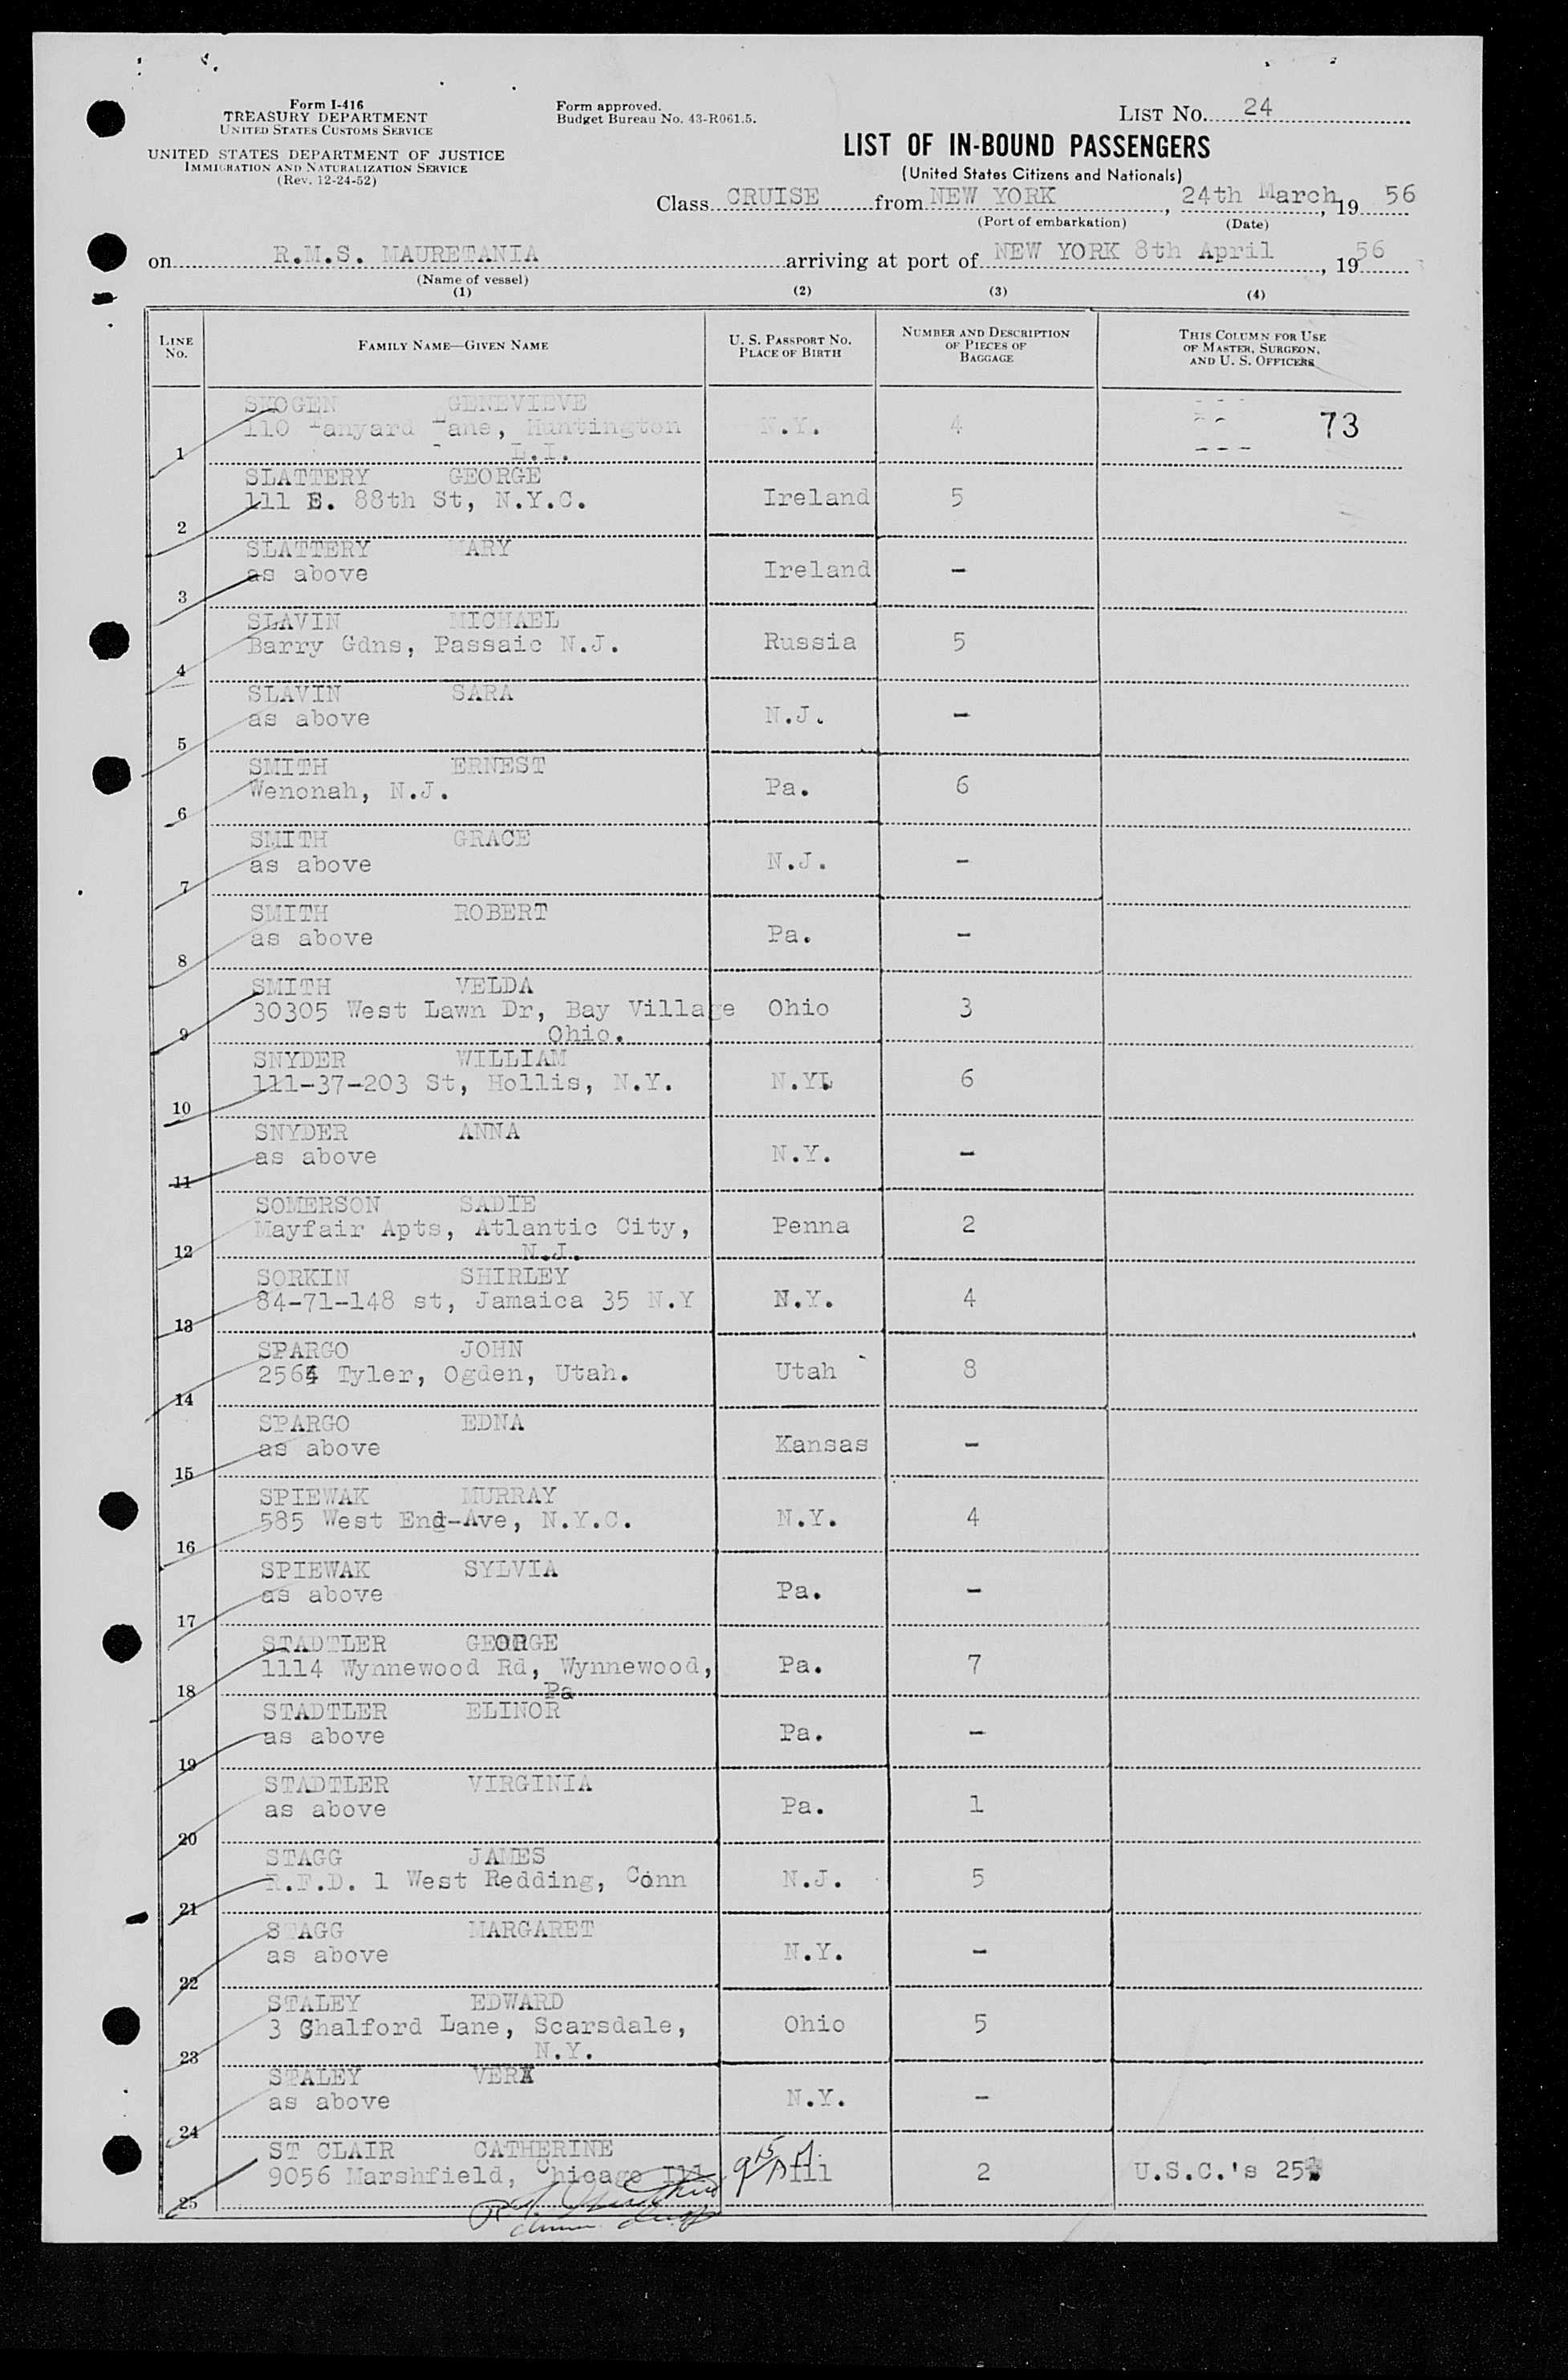 Form I-416
TREASURY DEPARTMENT
UNITED STATES CUSTOMS SERVICE
UNITED STATES DEPARTMENT OF JUSTICE
IMMIGRATION AND NATURALIZATION SERVICE
(Rev. 12-24-52)
Form approved.
Budget Bureau No. 43-R061.5.
LIST NO. 24
LIST OF IN-BOUND PASSENGERS
(United States Citizens and Nationals)
Class CRUISE from NEW YORK, 24th March, 19 56
(Port of embarkation) (Date)
on R.M.S. MAURETANIA arriving at port of NEW YORK 8th April, 19 56
(Name of vessel)
(1) (2) (3) (4)
LINE NO. FAMILY NAME—GIVEN NAME U. S. PASSPORT NO. PLACE OF BIRTH NUMBER AND DESCRIPTION OF PIECES OF BAGGAGE THIS COLUMN FOR USE OF MASTER, SURGEON, AND U. S. OFFICERS
SKOGEN GENEVIEVE
110 Tanyard Lane, Huntington N.Y. 4 73
1 L.I.
SLATTERY GEORGE
111 E. 88th St, N.Y.C. Ireland 5
2
SLATTERY MARY
as above Ireland -
3
SLAVIN MICHAEL
Barry Gdns, Passaic N.J. Russia 5
4
SLAVIN SARA
as above N.J. -
5
SMITH ERNEST
Wenonah, N.J. Pa. 6
6
SMITH GRACE
as above N.J. -
7
SMITH ROBERT
as above Pa. -
8
SMITH VELDA
30305 West Lawn Dr, Bay Village Ohio 3
9 Ohio.
SNYDER WILLIAM
111-37-203 St, Hollis, N.Y. N.Y. 6
10
SNYDER ANNA
as above N.Y. -
11
SOMERSON SADIE
Mayfair Apts, Atlantic City, Penna 2
12 N.J.
SORKIN SHIRLEY
84-71-148 st, Jamaica 35 N.Y N.Y. 4
13
SPARGO JOHN
2564 Tyler, Ogden, Utah. Utah 8
14
SPARGO EDNA
as above Kansas -
15
SPIEWAK MURRAY
585 West End-Ave, N.Y.C. N.Y. 4
16
SPIEWAK SYLVIA
as above Pa. -
17
STADTLER GEORGE
1114 Wynnewood Rd, Wynnewood, Pa. 7
18 Pa
STADTLER ELINOR
as above Pa. -
19
STADTLER VIRGINIA
as above Pa. 1
20
STAGG JAMES
R.F.D. 1 West Redding, Conn N.J. 5
21
STAGG MARGARET
as above N.Y. -
22
STALEY EDWARD
3 Chalford Lane, Scarsdale, Ohio 5
23 N.Y.
STALEY VERA
as above N.Y. -
24
ST CLAIR CATHERINE
9056 Marshfield, Chicago Ill 2 U.S.C.'s 25
25